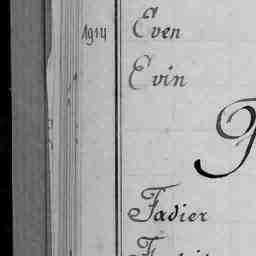 1914 Even
Evin
F
Favier